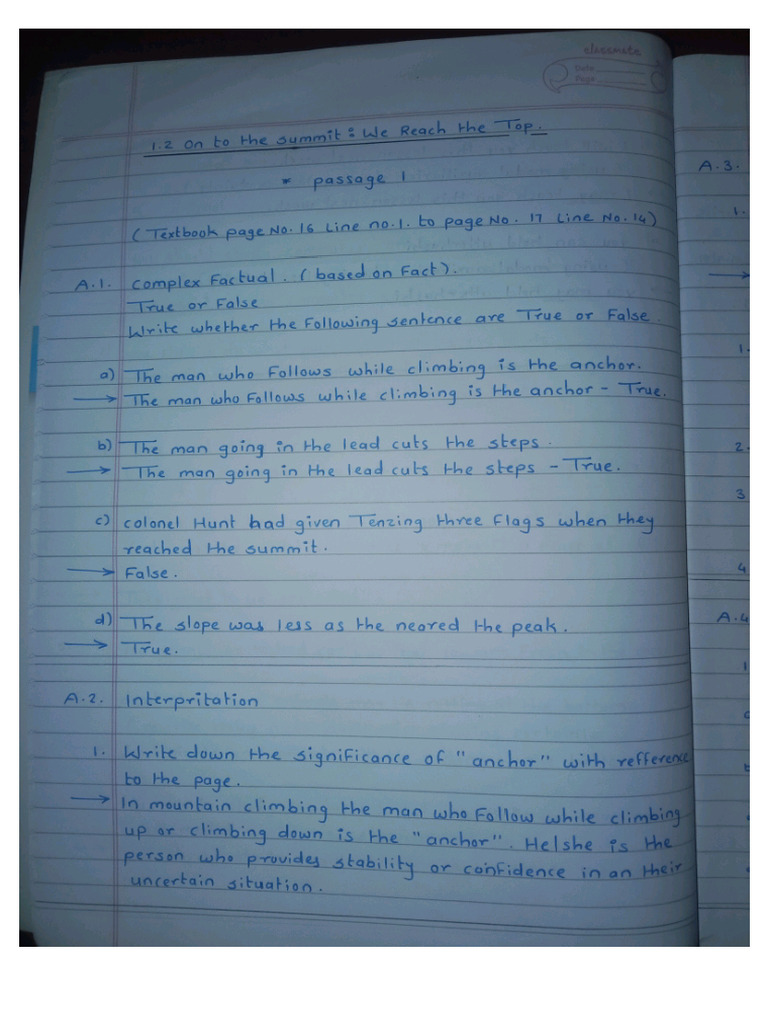 classmate
Date
Page
1.2 On to the summit : We Reach the Top.
* passage 1
(Textbook page No. 16 Line no.1. to page No. 17 Line No. 14)
A.1. complex Factual. (based on Fact).
True or False
Write whether the following sentence are True or False.
a) The man who follows while climbing is the anchor.
→ The man who follows while climbing is the anchor - True.
b) The man going in the lead cuts the steps.
→ The man going in the lead cuts the steps - True.
c) colonel Hunt had given Tenzing three flags when they
reached the summit.
→ False.
d) The slope was less as the neored the peak.
→ True.
A.2. Interpritation
1. Write down the significance of "anchor" with refference
to the page.
→ In mountain climbing the man who follow while climbing
up or climbing down is the "anchor". He|she is the
person who provides stability or confidence in an their
uncertain situation.
A.3.
1.
→
1.
2.
3
4
A.4
1